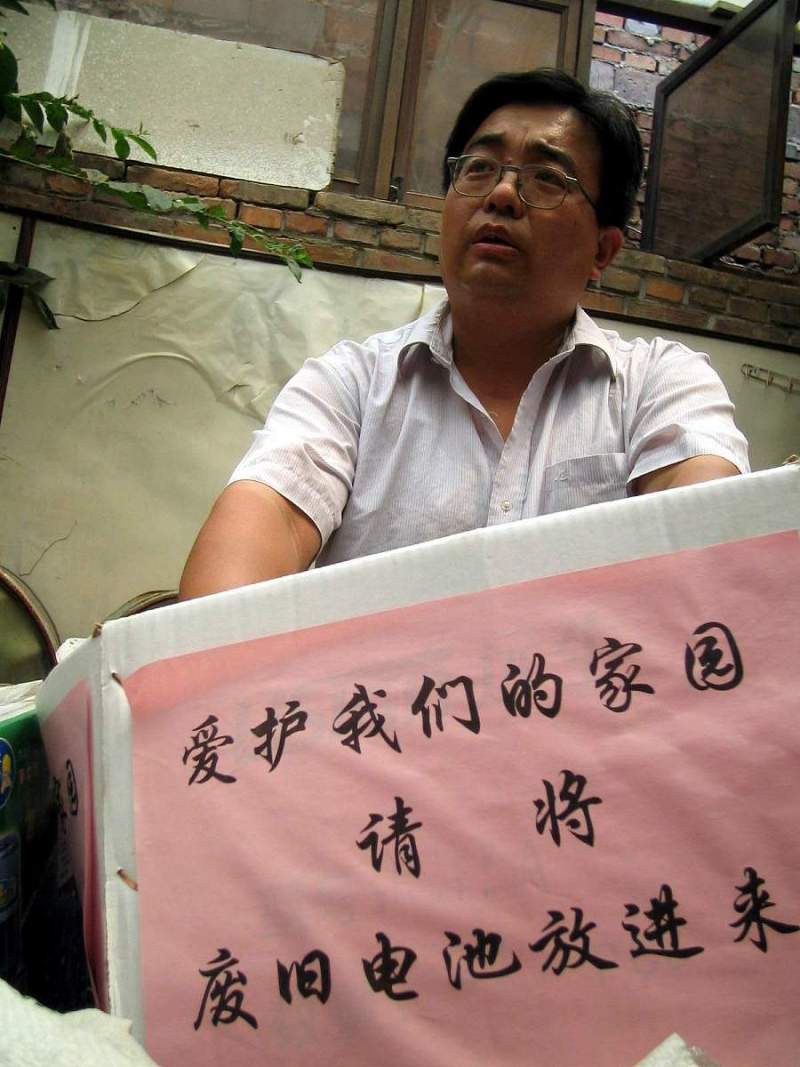 爱护我们的家园
请将
废旧电池放进来
园